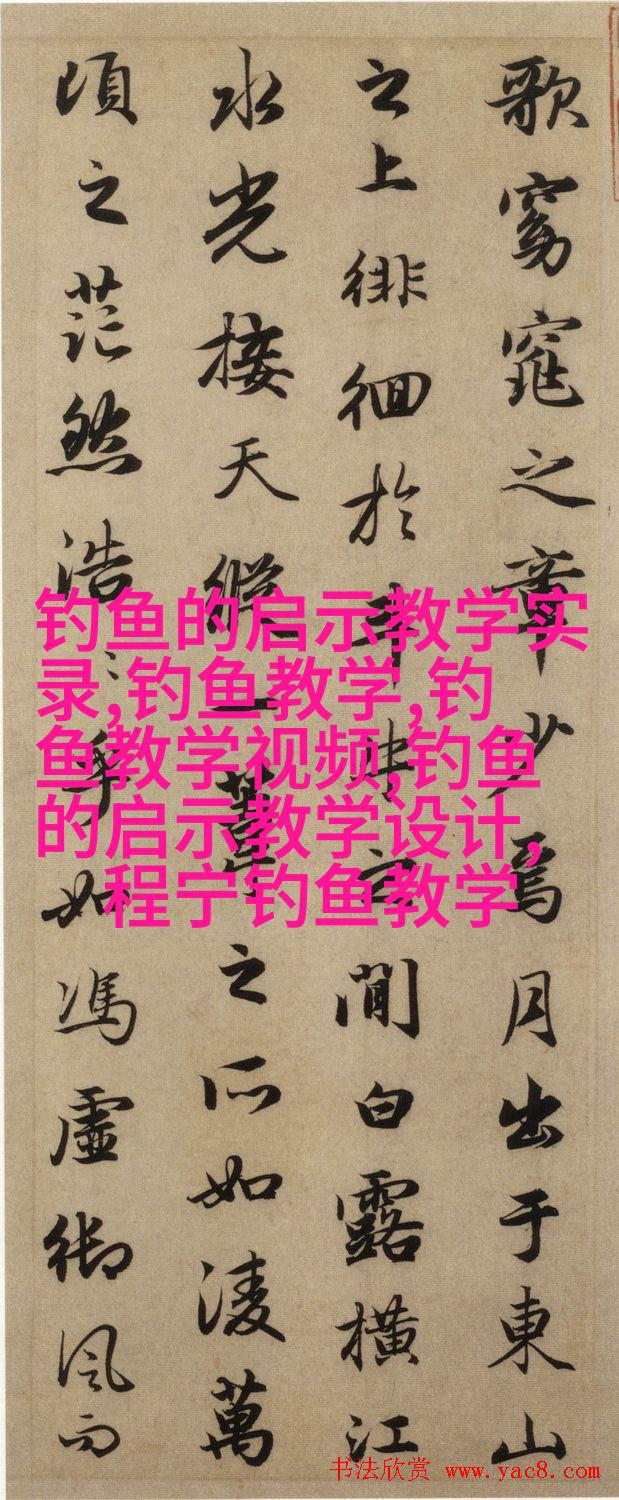 歌窈窕之章少焉月出于東山
之上徘徊於斗牛之間白露橫江
水光接天縱一葦之所如淩萬
頃之茫然浩〻乎如馮虛御風而
钓鱼的启示教学实
录,钓鱼教学,钓
鱼教学视频,钓鱼
的启示教学设计,
程宁钓鱼教学
书法欣赏 www.yac8.com